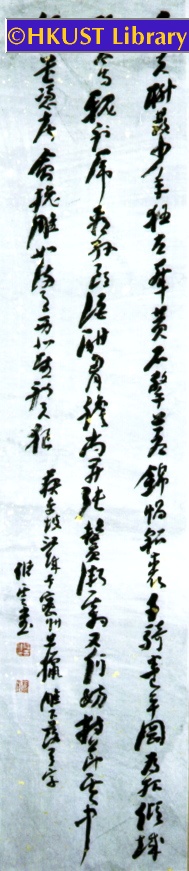 ©HKUST Library
老夫聊發少年狂左牽黃右擎蒼錦帽貂裘千騎卷平岡為報傾城
太守親射虎看孫郎酒酣胸膽尚開張鬢微霜又何妨持節雲中
遣馮唐會挽雕如滿月西北望射天狼
蘇東坡江城子密州出獵 雕下落弓字